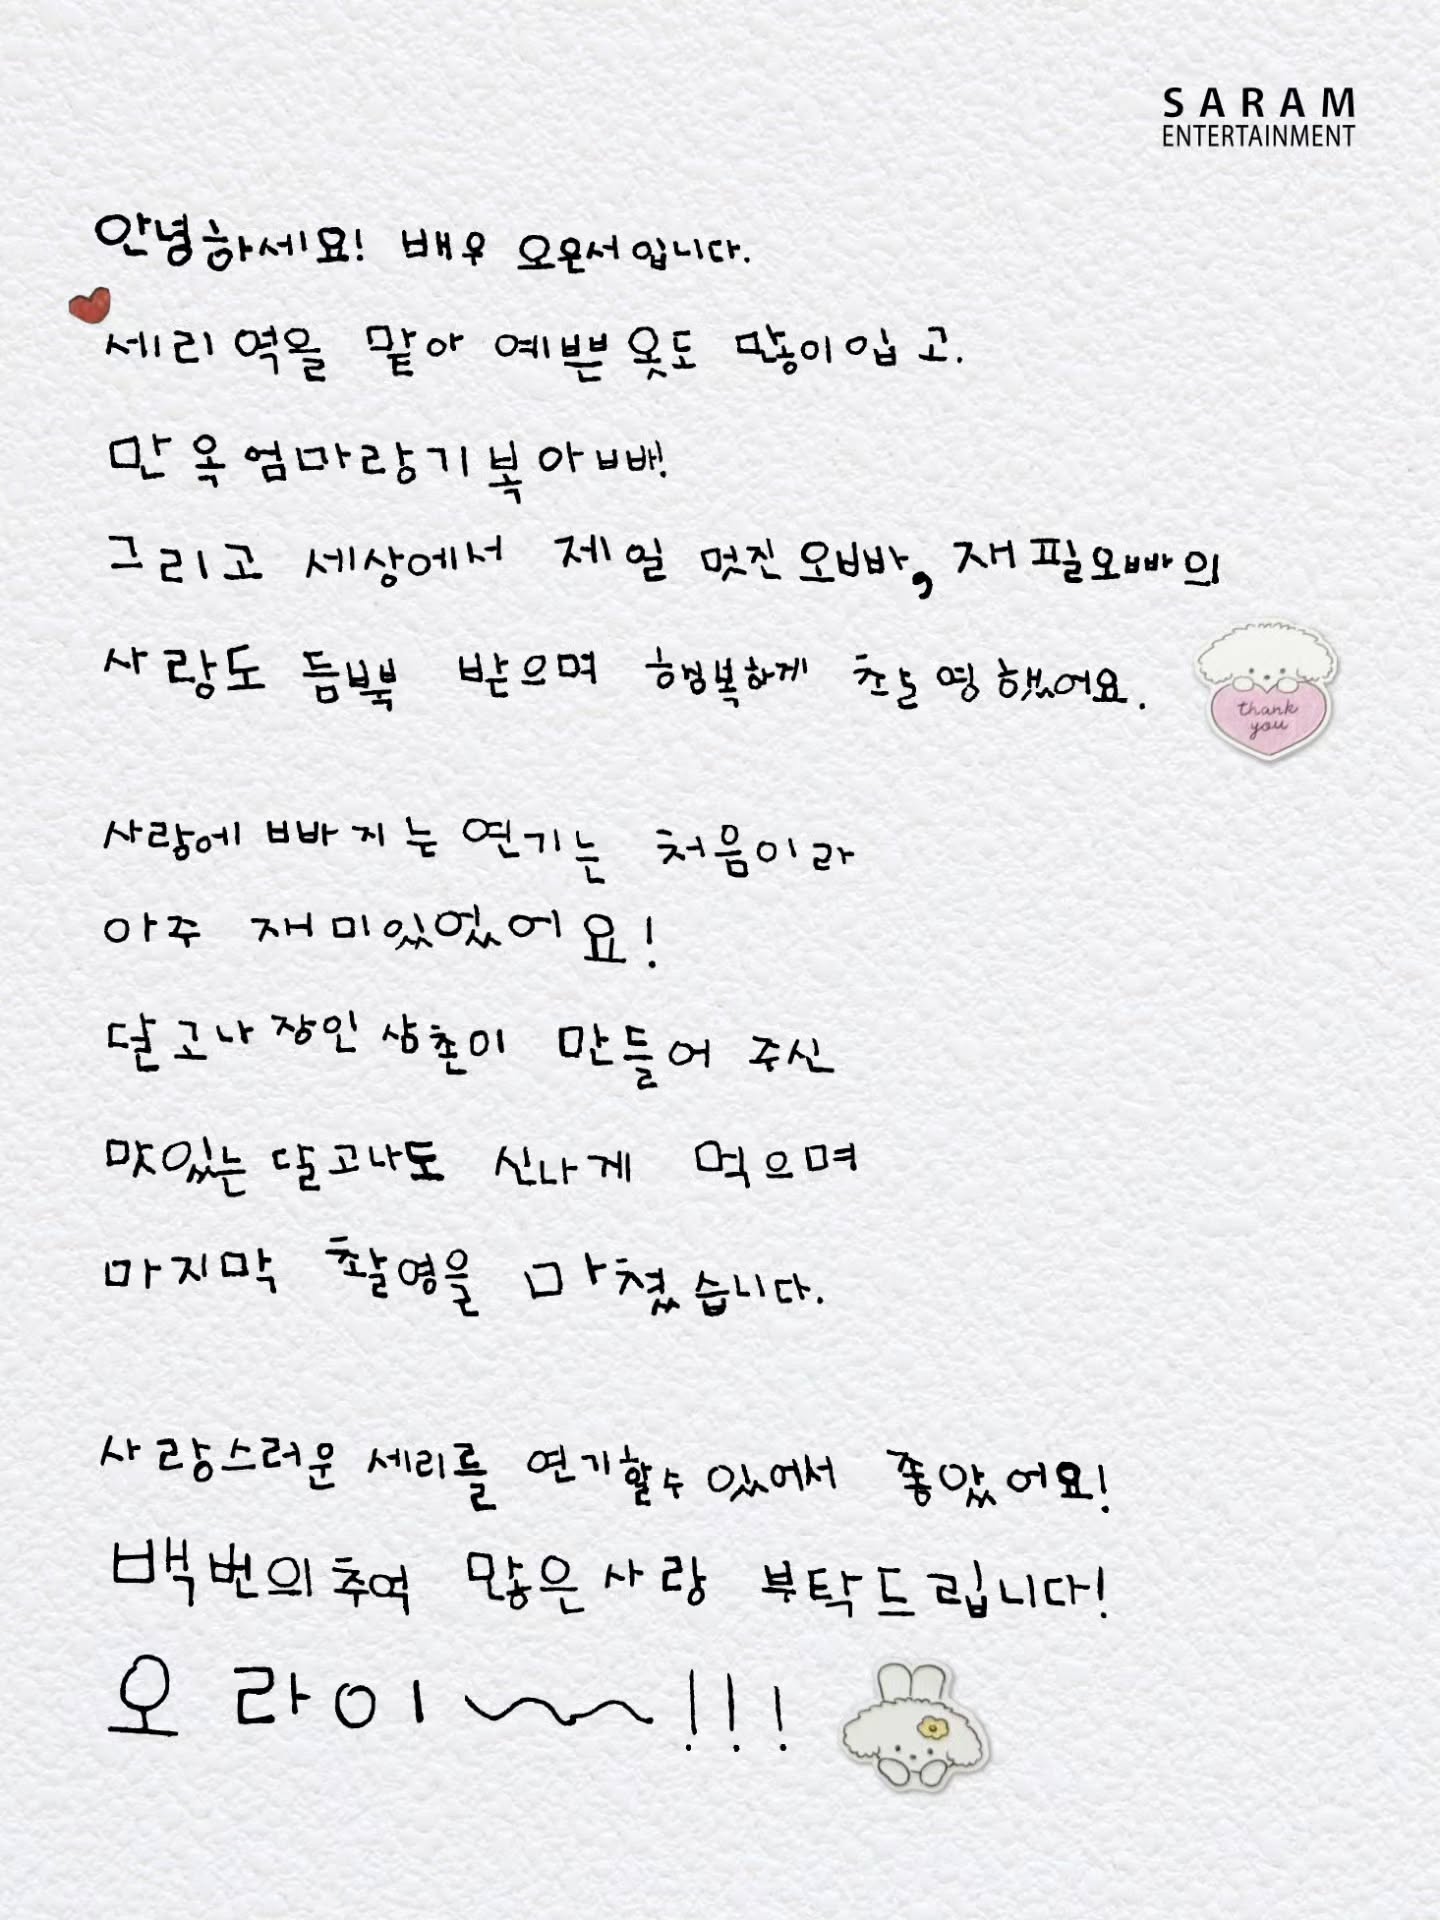 SARAM
ENTERTAINMENT
안녕하세요! 배우 오은서입니다.
세리 역을 맡아 예쁜 옷도 많이 입고.
만옥 엄마랑 기복 아빠!
그리고 세상에서 제일 멋진 오빠, 재필오빠의
사랑도 듬뿍 받으며 행복하게 촬영했어요.
thank
you
사랑에 빠지는 연기는 처음이라
아주 재미있었어요!
달고나 장인 삼촌이 만들어 주신
맛있는 달고나도 신나게 먹으며
마지막 촬영을 마쳤습니다.
사랑스러운 세리를 연기할 수 있어서 좋았어요!
백번의 추억 많은 사랑 부탁드립니다!
오라이~~!!!